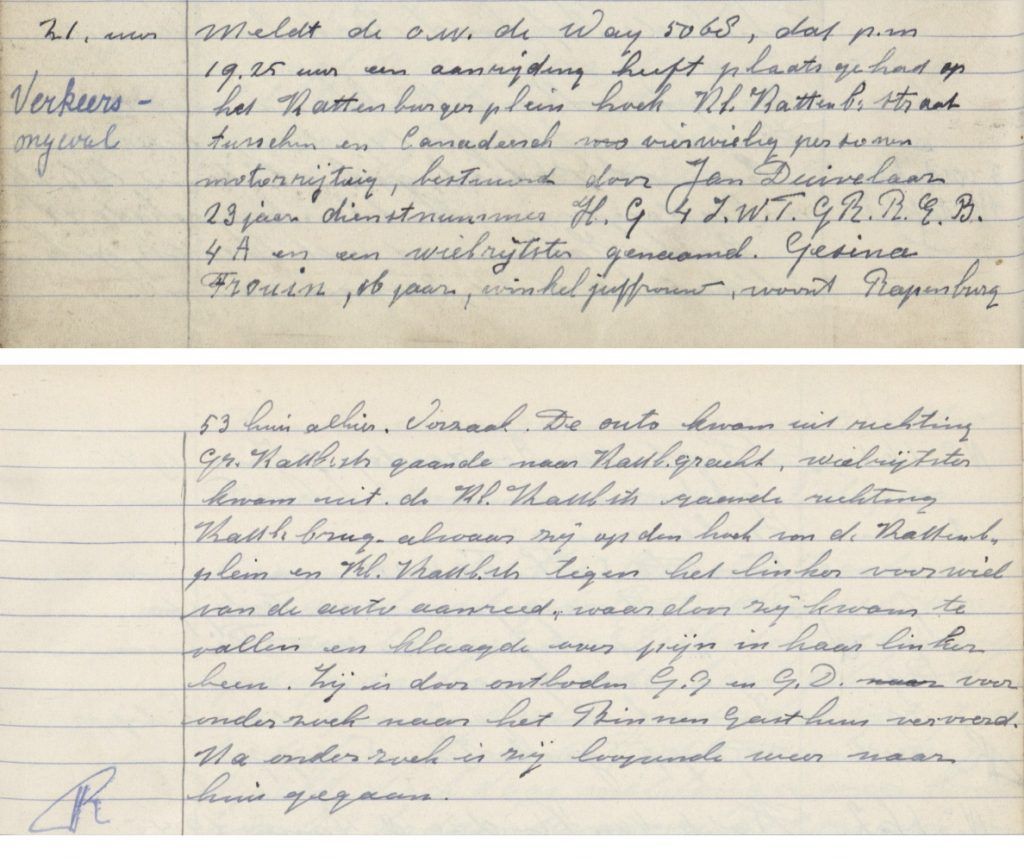 21. uur
Verkeers-
ongeval
Meldt de o.w. de Way 5068, dat p.m
19.25 uur een aanrijding heeft plaats gehad op
het Kattenburgerplein hoek Kl. Kattenb. straat
tusschen en Canadeesch vierwielig personen
motorrijtuig, bestuurd door Jan Duivelaar
23 jaar dienstnummer H. G 4 J.W.T. GR.R.E.B.
4 A en een wielrijdster genaamd. Gesina
Frouin, 16 jaar, winkeljuffrouw, woont Rapenburg
53 huis alhier. Oorzaak. De auto kwam uit richting
Gr. Kattb.str gaande naar Kattb.gracht, wielrijtster
kwam uit de Kl. Kattb.str gaande richting
Kattb. brug. alwaar zij op den hoek van de Kattenb.
plein en Kl. Kattb.str tegen het linker voorwiel
van de auto aanreed, waardoor zij kwam te
vallen en klaagde over pijn in haar linker
been. Zij is door ontboden G.G en G.D. naar voor
onderzoek naar het Binnen Gasthuis vervoerd.
Na onderzoek is zij loopende weer naar
huis gegaan.